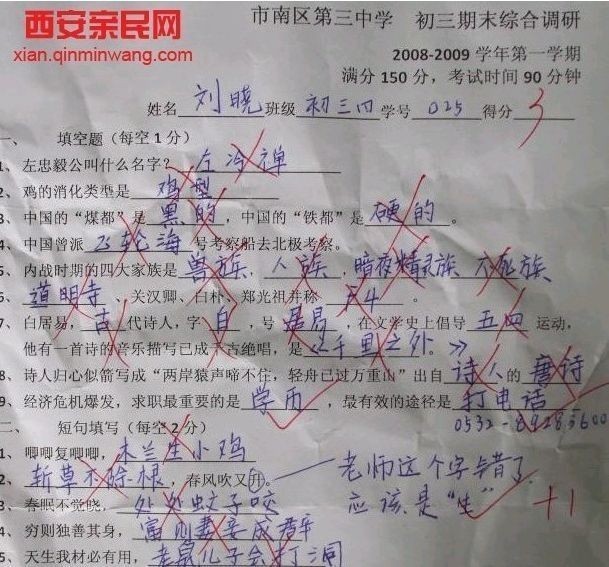 西安亲民网
xian.qinminwang.com
市南区第三中学 初三期末综合调研
2008-2009 学年第一学期
满分 150 分，考试时间 90 分钟
姓名 刘晓 班级 初三四 学号 025 得分 3
一、 填空题（每空 1 分）
1、左忠毅公叫什么名字？ 左冷禅
2、鸡的消化类型是 鸡型
3、中国的“煤都”是 黑的 ，中国的“铁都”是 硬的 。
4、中国曾派 飞轮海 号考察船去北极考察。
5、内战时期的四大家族是 兽族 ， 人族 ， 暗夜精灵族 不死族
6、 道明寺 、关汉卿、白朴、郑光祖并称 F4 。
7、白居易， 古 代诗人，字 白 ，号 居易 ，在文学史上倡导 五四 运动，
他有一首诗的音乐描写已成千古绝唱，是 《千里之外。》
8、诗人归心似箭写成“两岸猿声啼不住，轻舟已过万重山”出自 诗人 的 唐诗
9、经济危机爆发，求职最重要的是 学历 ，最有效的途径是 打电话
二、 短句填写（每空 2 分）
1、唧唧复唧唧， 木兰生小鸡
2、 斩草不除根 ，春风吹又升。 老师这个字错了
应该是“生” +1
3、春眠不觉晓， 处处蚊子咬
4、穷则独善其身， 富则妻妾成群
5、天生我材必有用， 老鼠儿子会打洞